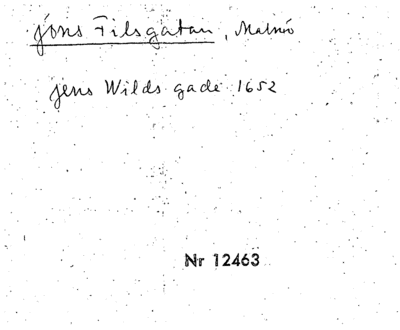 Jöns Filsgatan, Malmö
Jens Wilds gade 1652
Nr 12463